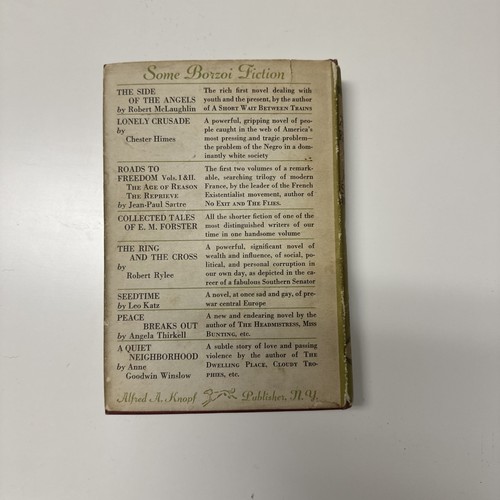 Some Borzoi Fiction
THE SIDE
OF THE ANGELS
by Robert McLaughlin
The rich first novel dealing with
youth and the present, by the author
of A SHORT WAIT BETWEEN TRAINS
LONELY CRUSADE
by
Chester Himes
A powerful, gripping novel of peo-
ple caught in the web of America's
most pressing and tragic problem—
the problem of the Negro in a dom-
inantly white society
ROADS TO
FREEDOM Vols. I & II.
THE AGE OF REASON
THE REPRIEVE
by Jean-Paul Sartre
The first two volumes of a remark-
able, searching trilogy of modern
France, by the leader of the French
Existentialist movement, author of
NO EXIT AND THE FLIES.
COLLECTED TALES
OF E. M. FORSTER
All the shorter fiction of one of the
most distinguished writers of our
time in one handsome volume
THE RING
AND THE CROSS
by
Robert Rylee
A powerful, significant novel of
wealth and influence, of social, po-
litical, and personal corruption in
our own day, as depicted in the ca-
reer of a fabulous Southern Senator
SEEDTIME
by Leo Katz
A novel, at once sad and gay, of pre-
war central Europe
PEACE
BREAKS OUT
by Angela Thirkell
A new and endearing novel by the
author of THE HEADMISTRESS, MISS
BUNTING, etc.
A QUIET
NEIGHBORHOOD
by Anne
Goodwin Winslow
A subtle story of love and passing
violence by the author of THE
DWELLING PLACE, CLOUDY TRO-
PHIES, etc.
Alfred A. Knopf Publisher, N.Y.